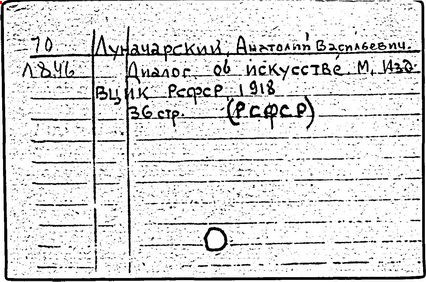 70 Луначарский, Анатолий Васильевич.
Л 846 Диалог об искусстве. М, Изд.
ВЦИК РСФСР 1918
36 стр. (РСФСР)